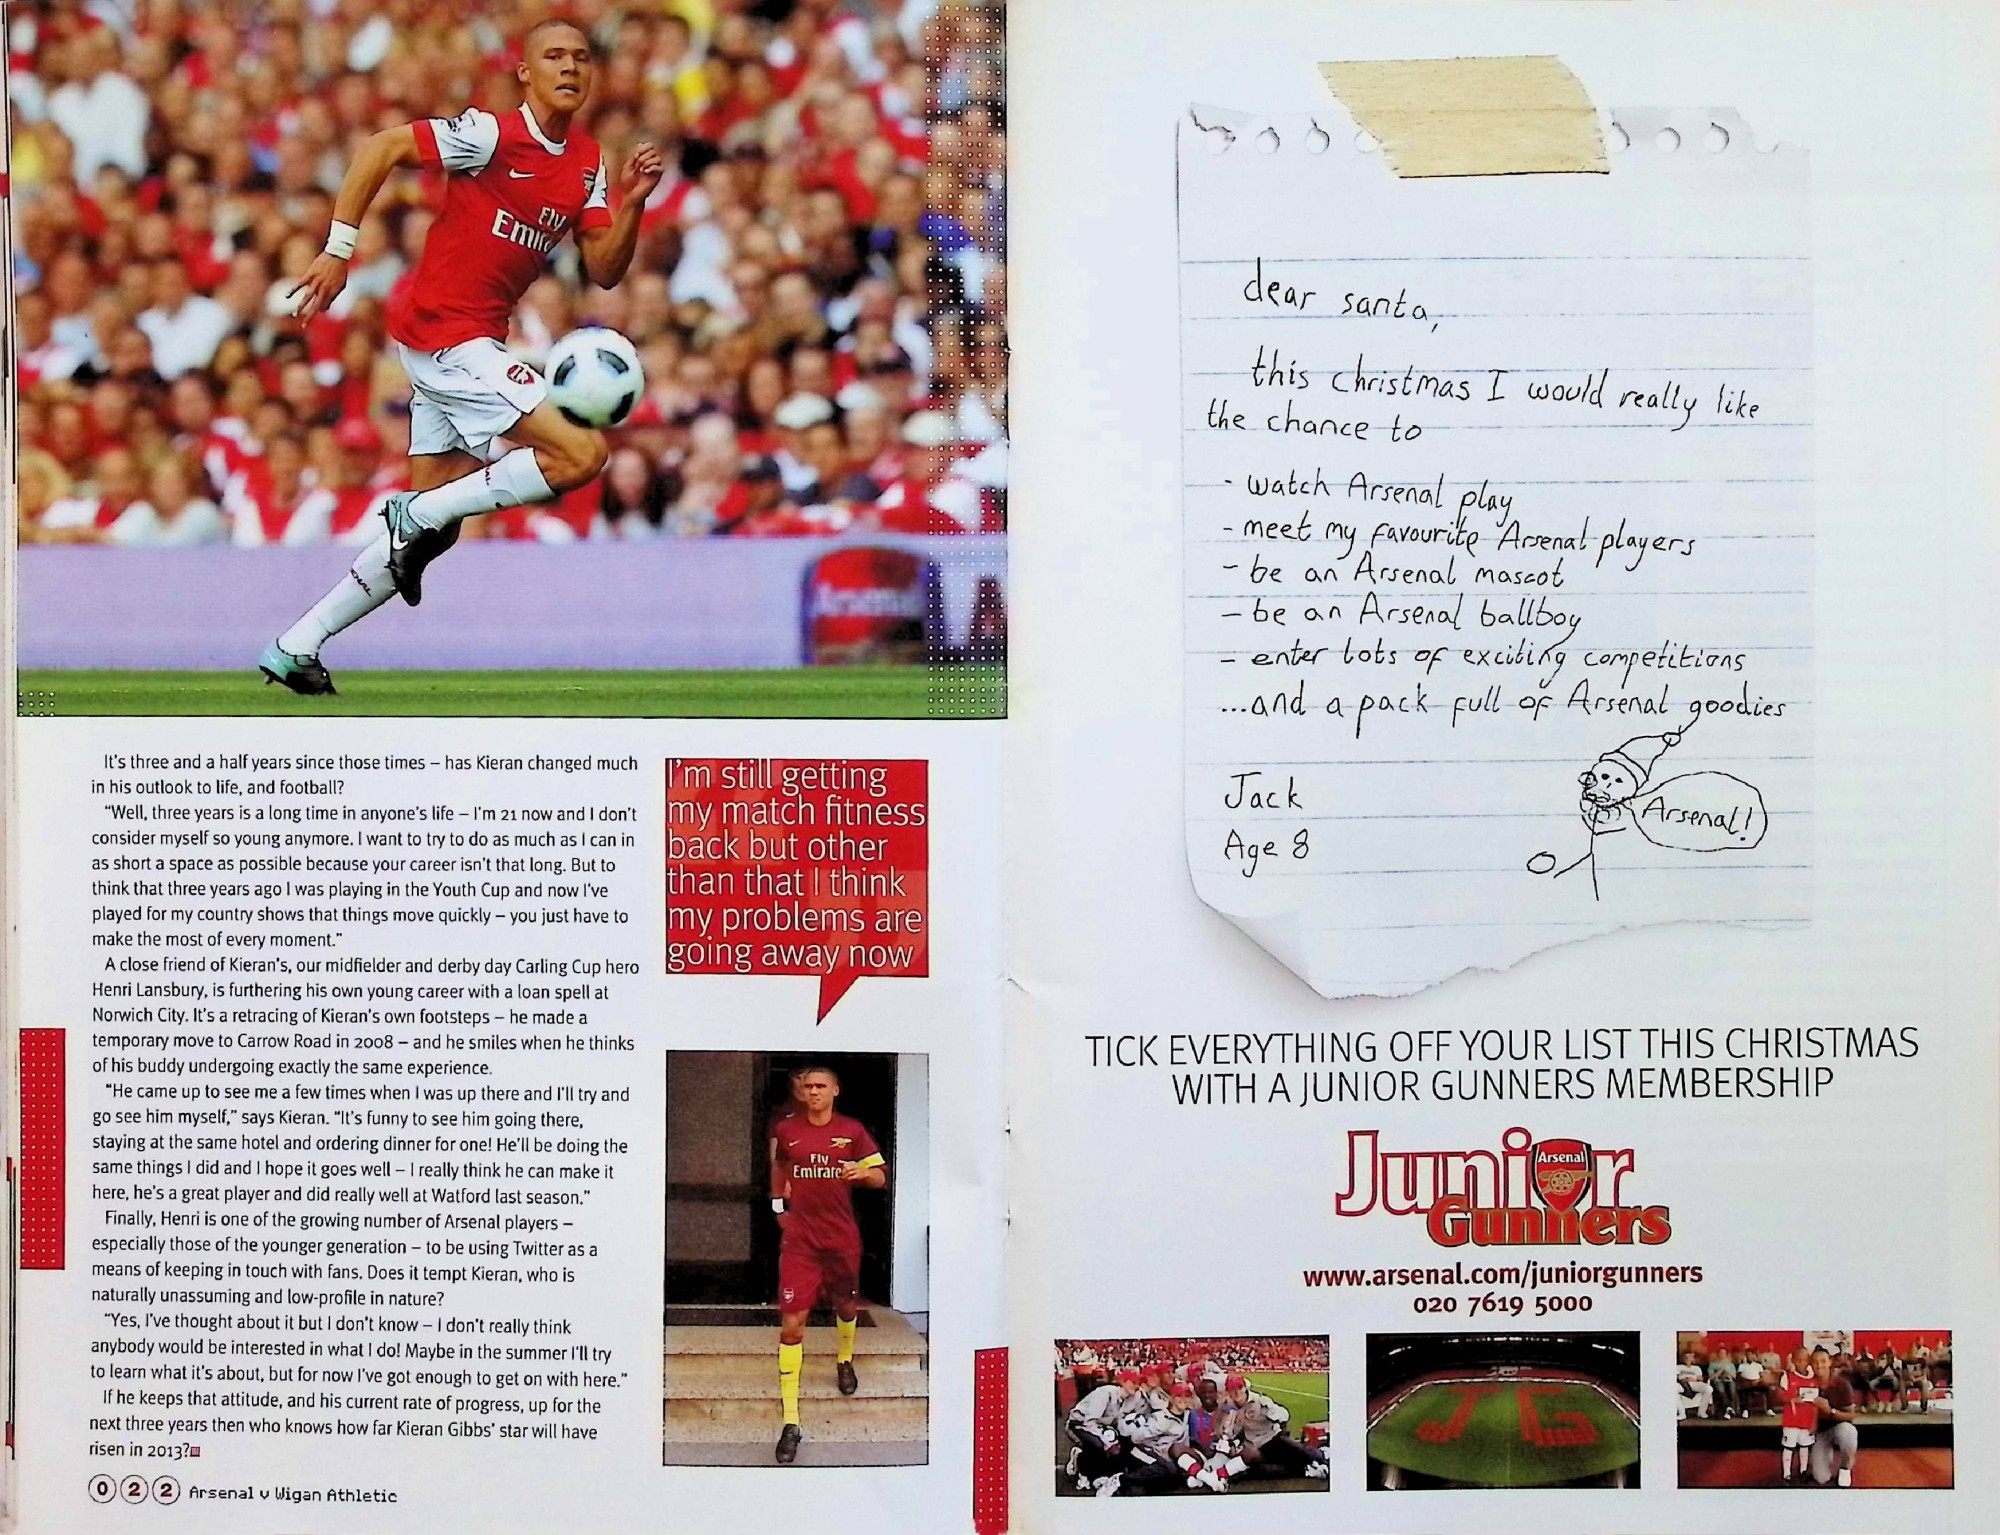 Fly
Emirates
It's three and a half years since those times – has Kieran changed much
in his outlook to life, and football?
"Well, three years is a long time in anyone's life – I'm 21 now and I don't
consider myself so young anymore. I want to try to do as much as I can in
as short a space as possible because your career isn't that long. But to
think that three years ago I was playing in the Youth Cup and now I've
played for my country shows that things move quickly – you just have to
make the most of every moment."
A close friend of Kieran's, our midfielder and derby day Carling Cup hero
Henri Lansbury, is furthering his own young career with a loan spell at
Norwich City. It's a retracing of Kieran's own footsteps – he made a
temporary move to Carrow Road in 2008 – and he smiles when he thinks
of his buddy undergoing exactly the same experience.
"He came up to see me a few times when I was up there and I'll try and
go see him myself," says Kieran. "It's funny to see him going there,
staying at the same hotel and ordering dinner for one! He'll be doing the
same things I did and I hope it goes well – I really think he can make it
here, he's a great player and did really well at Watford last season."
Finally, Henri is one of the growing number of Arsenal players –
especially those of the younger generation – to be using Twitter as a
means of keeping in touch with fans. Does it tempt Kieran, who is
naturally unassuming and low-profile in nature?
"Yes, I've thought about it but I don't know – I don't really think
anybody would be interested in what I do! Maybe in the summer I'll try
to learn what it's about, but for now I've got enough to get on with here."
If he keeps that attitude, and his current rate of progress, up for the
next three years then who knows how far Kieran Gibbs' star will have
risen in 2013?
I'm still getting
my match fitness
back but other
than that I think
my problems are
going away now
Fly
Emirates
022 Arsenal v Wigan Athletic
dear santa,
this christmas I would really like
the chance to
- watch Arsenal play
- meet my favourite Arsenal players
- be an Arsenal mascot
- be an Arsenal ballboy
- enter lots of exciting competitions
...and a pack full of Arsenal goodies
Jack
Age 8
Arsenal!
TICK EVERYTHING OFF YOUR LIST THIS CHRISTMAS
WITH A JUNIOR GUNNERS MEMBERSHIP
Junior
Arsenal
Gunners
www.arsenal.com/juniorgunners
020 7619 5000
JG